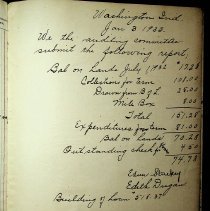 Washington Ind
Jan 3 1933.
We the auditing committee
submit the following report;
Bal on hands July 1932 $17.25
Collections for term 101.00
Drawn from B & L 25.00
Mite Box 8.00
Total 151.25
Expenditures for term 81.00
Bal on hands 70.25
Outstanding check for 4.50
74.75
Edith Dugan
Building of Loan